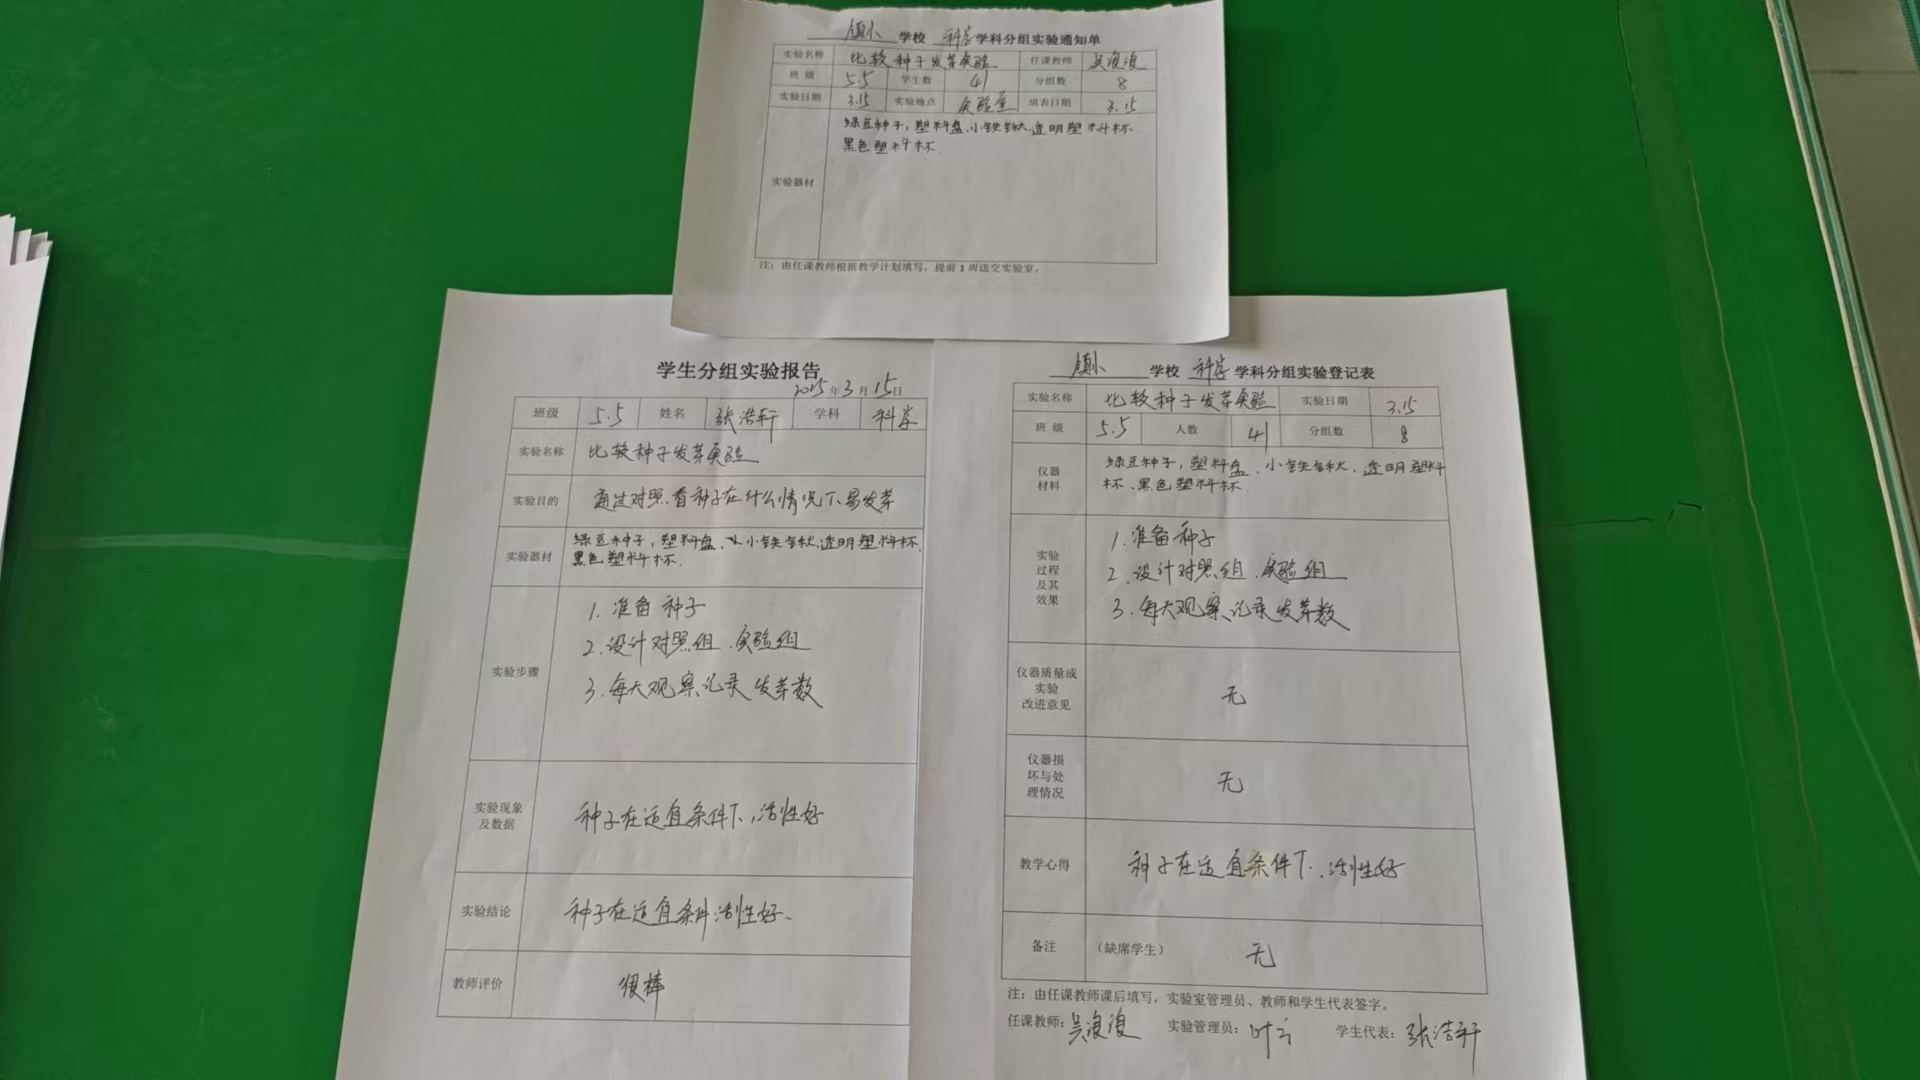 镇小 学校 科学 学科分组实验通知单
实验名称 比较种子发芽实验 任课教师 吴浪浪
班 级 5.5 学生数 41 分组数 8
实验日期 3.15 实验地点 实验室 填表日期 3.15
实验器材 绿豆种子,塑料盘、小铁锹、透明塑料杯、
黑色塑料杯.
注:由任课教师根据教学计划填写,提前1周送交实验室。
学生分组实验报告
2025年3月15日
班级 5.5 姓名 张浩轩 学科 科学
实验名称 比较种子发芽实验
实验目的 通过对照看种子在什么情况下易发芽
实验器材 绿豆种子,塑料盘、小铁锹、透明塑料杯、
黑色塑料杯.
实验步骤
1. 准备种子
2. 设计对照组、实验组
3. 每天观察、记录发芽数
实验现象
及数据
种子在适宜条件下,活性好
实验结论 种子在适宜条件活性好、
教师评价 很棒
镇小 学校 科学 学科分组实验登记表
实验名称 比较种子发芽实验 实验日期 3.15
班 级 5.5 人数 41 分组数 8
仪器
材料
绿豆种子,塑料盘、小铁锹、透明塑料
杯、黑色塑料杯.
实验
过程
及其
效果
1. 准备种子
2. 设计对照组、实验组
3. 每天观察、记录发芽数
仪器质量或
实验
改进意见
无
仪器损
坏与处
理情况
无
教学心得 种子在适宜条件下、活性好
备注 (缺席学生) 无
注:由任课教师课后填写,实验室管理员、教师和学生代表签字。
任课教师:吴浪浪 实验管理员: 学生代表:张浩轩